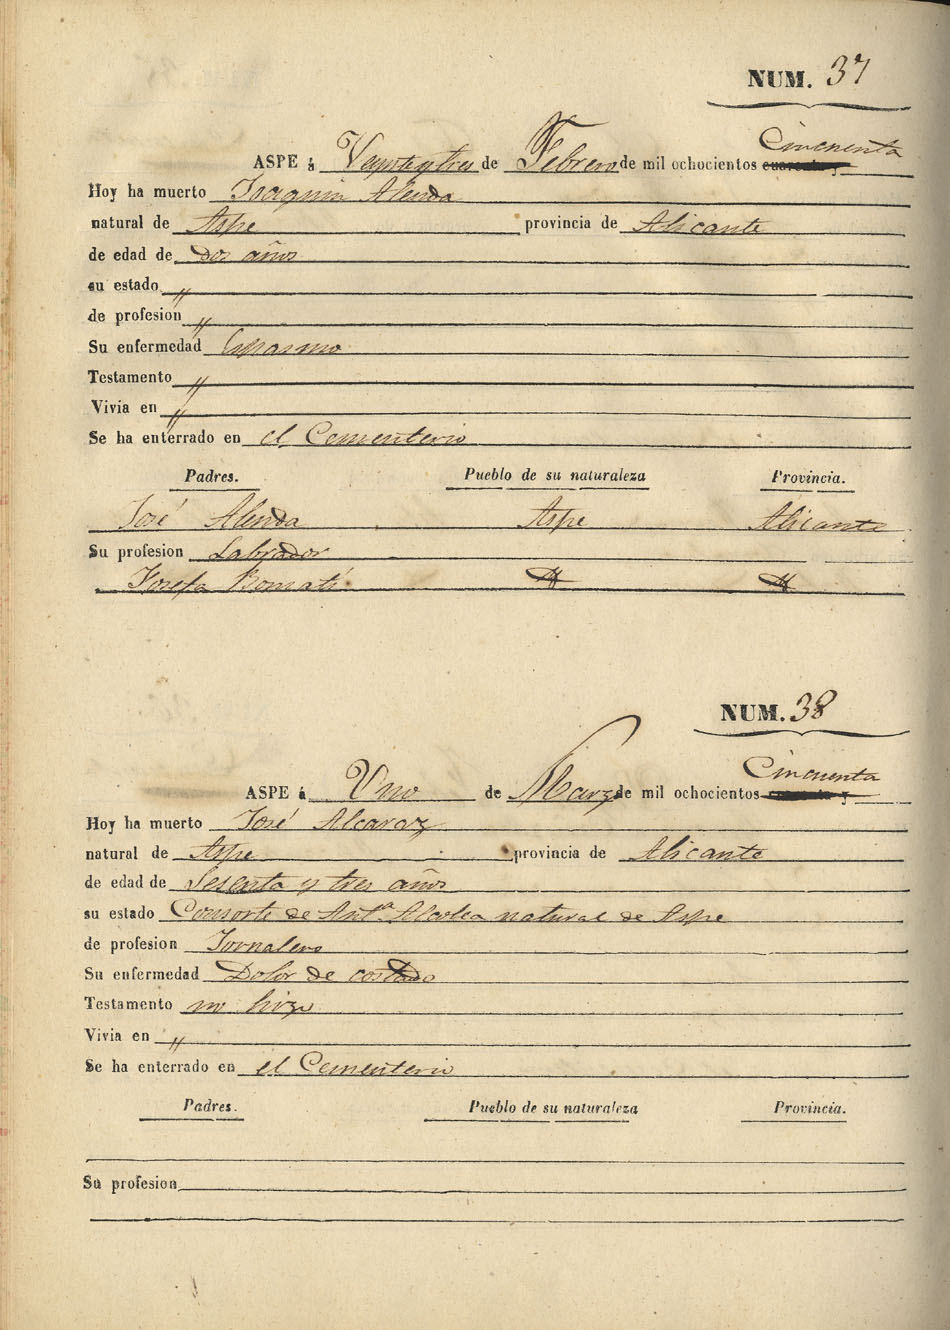 NUM. 37
ASPE á Veynte y tres de Febrero de mil ochocientos Cincuenta
Hoy ha muerto Joaquin Alenda
natural de Aspe provincia de Alicante
de edad de dos años
su estado "
de profesion "
Su enfermedad Espasmo
Testamento "
Vivia en "
Se ha enterrado en el Cementerio
Padres. Pueblo de su naturaleza Provincia.
José Alenda Aspe Alicante
Su profesion Labrador
Josefa Bomati
NUM. 38
ASPE á Uno de Marzo de mil ochocientos Cincuenta
Hoy ha muerto José Alcaraz
natural de Aspe provincia de Alicante
de edad de Sesenta y tres años
su estado Consorte de Antª Alcolea natural de Aspe
de profesion Jornalero
Su enfermedad Dolor de costado
Testamento no hizo
Vivia en "
Se ha enterrado en el Cementerio
Padres. Pueblo de su naturaleza Provincia.
Su profesion